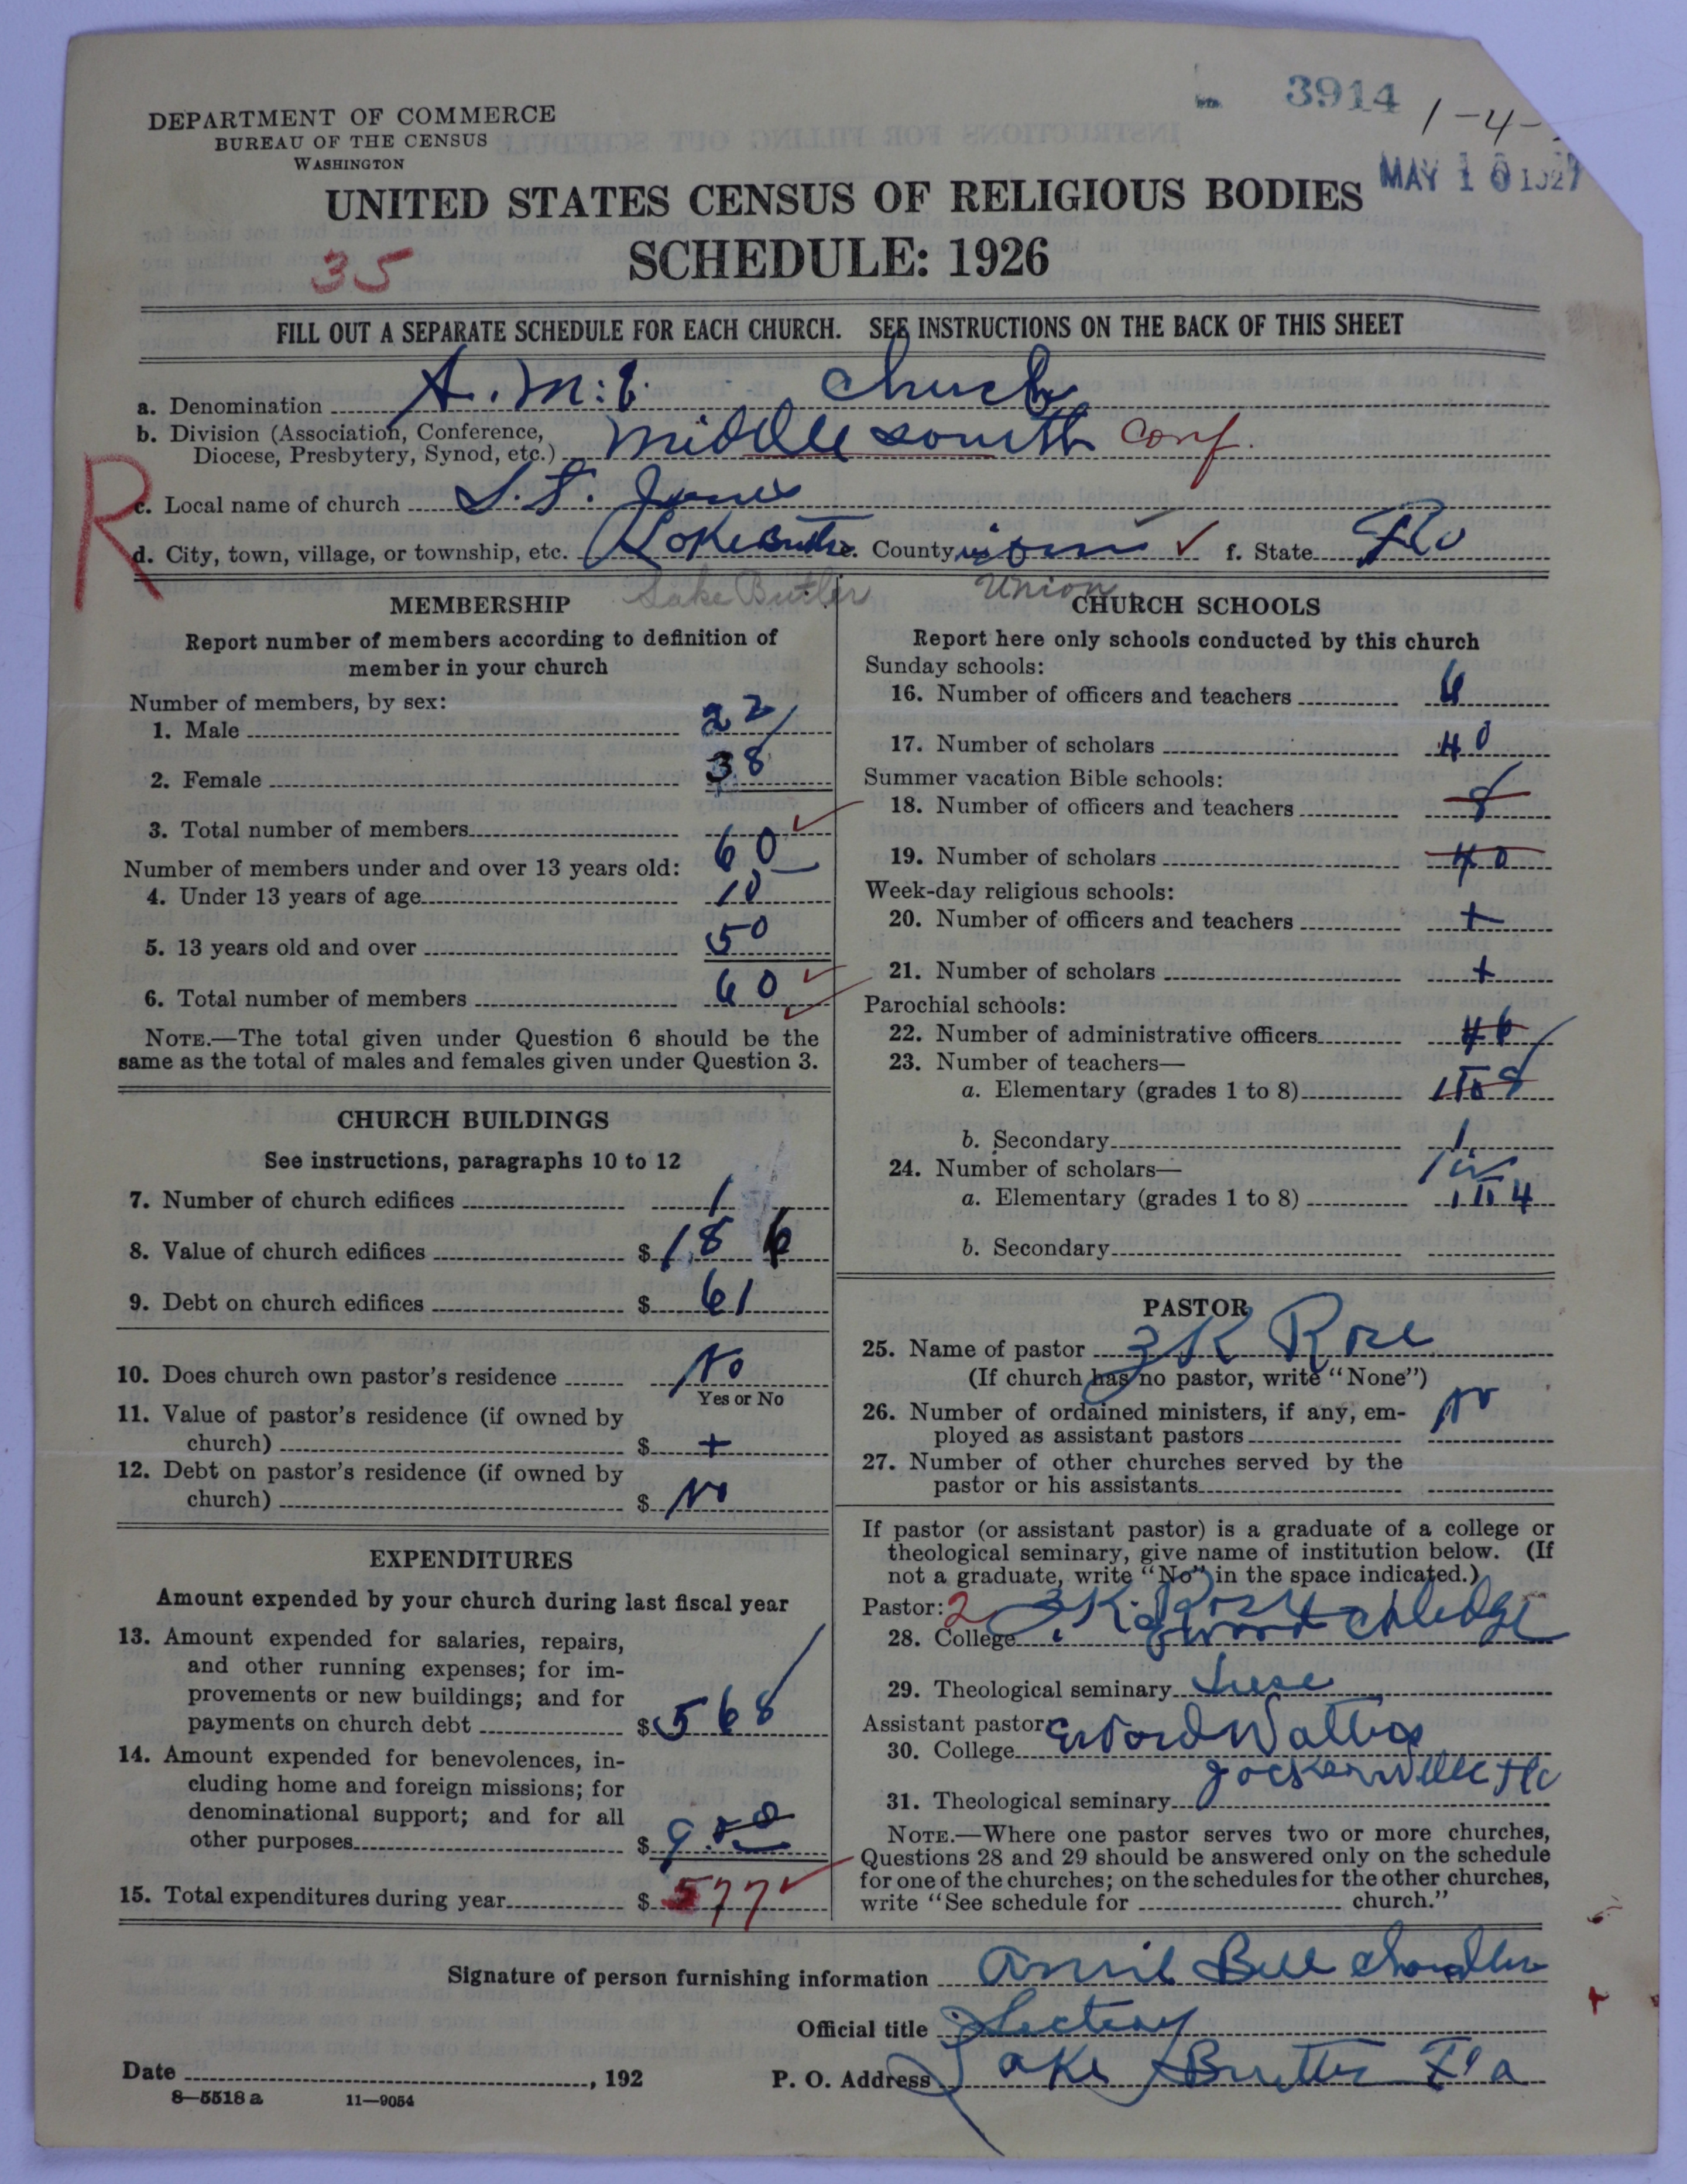 3914
1-4-
MAY 16 1927
DEPARTMENT OF COMMERCE
BUREAU OF THE CENSUS
WASHINGTON
UNITED STATES CENSUS OF RELIGIOUS BODIES
SCHEDULE: 1926
35
FILL OUT A SEPARATE SCHEDULE FOR EACH CHURCH. SEE INSTRUCTIONS ON THE BACK OF THIS SHEET
a. Denomination A. M. E. Church
b. Division (Association, Conference,
Diocese, Presbytery, Synod, etc.) middle south Conf.
R
c. Local name of church S.t. James
d. City, town, village, or township, etc. Lake Butler e. County f. State Fla
Lake Butler Union
MEMBERSHIP
Report number of members according to definition of
member in your church
Number of members, by sex:
1. Male 22
2. Female 38
3. Total number of members 60
Number of members under and over 13 years old:
4. Under 13 years of age 10
5. 13 years old and over 50
6. Total number of members 60
NOTE.—The total given under Question 6 should be the
same as the total of males and females given under Question 3.
CHURCH BUILDINGS
See instructions, paragraphs 10 to 12
7. Number of church edifices 1
8. Value of church edifices $ 18 6
9. Debt on church edifices $ 61
10. Does church own pastor's residence No
Yes or No
11. Value of pastor's residence (if owned by
church) $ +
12. Debt on pastor's residence (if owned by
church) $ No
EXPENDITURES
Amount expended by your church during last fiscal year
13. Amount expended for salaries, repairs,
and other running expenses; for im-
provements or new buildings; and for
payments on church debt $ 568
14. Amount expended for benevolences, in-
cluding home and foreign missions; for
denominational support; and for all
other purposes $ 9.
15. Total expenditures during year $ 577
CHURCH SCHOOLS
Report here only schools conducted by this church
Sunday schools:
16. Number of officers and teachers 6
17. Number of scholars 40
Summer vacation Bible schools:
18. Number of officers and teachers 8
19. Number of scholars 40
Week-day religious schools:
20. Number of officers and teachers +
21. Number of scholars +
Parochial schools:
22. Number of administrative officers
23. Number of teachers—
a. Elementary (grades 1 to 8)
b. Secondary 1
24. Number of scholars—
a. Elementary (grades 1 to 8)
b. Secondary
PASTOR
25. Name of pastor K Rose
(If church has no pastor, write "None")
26. Number of ordained ministers, if any, em- No
ployed as assistant pastors
27. Number of other churches served by the
pastor or his assistants
If pastor (or assistant pastor) is a graduate of a college or
theological seminary, give name of institution below. (If
not a graduate, write "No" in the space indicated.)
Pastor: 2 K.
28. College
29. Theological seminary
Assistant pastor:
30. College
31. Theological seminary
NOTE.—Where one pastor serves two or more churches,
Questions 28 and 29 should be answered only on the schedule
for one of the churches; on the schedules for the other churches,
write "See schedule for church."
Signature of person furnishing information Annie Bell Chandler
Official title Secteay
Date , 192 P. O. Address Lake Butler Fla
8—5518 a 11—9054